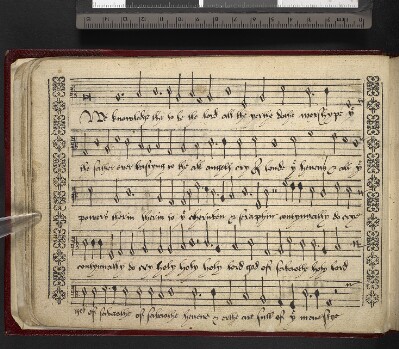 We knowledge the to be the lord all the yerthe dothe worshype yͤ
the father ever lastyng to the all angels cry yͤ hevens & all yͤ
powers therin to yͤ cherubin & seraphin contynually do crye
contynually do cry holy holy holy lord god of sabaothe holy lord
god of sabaothe of sabaothe hevens & erthe are full of yͤ